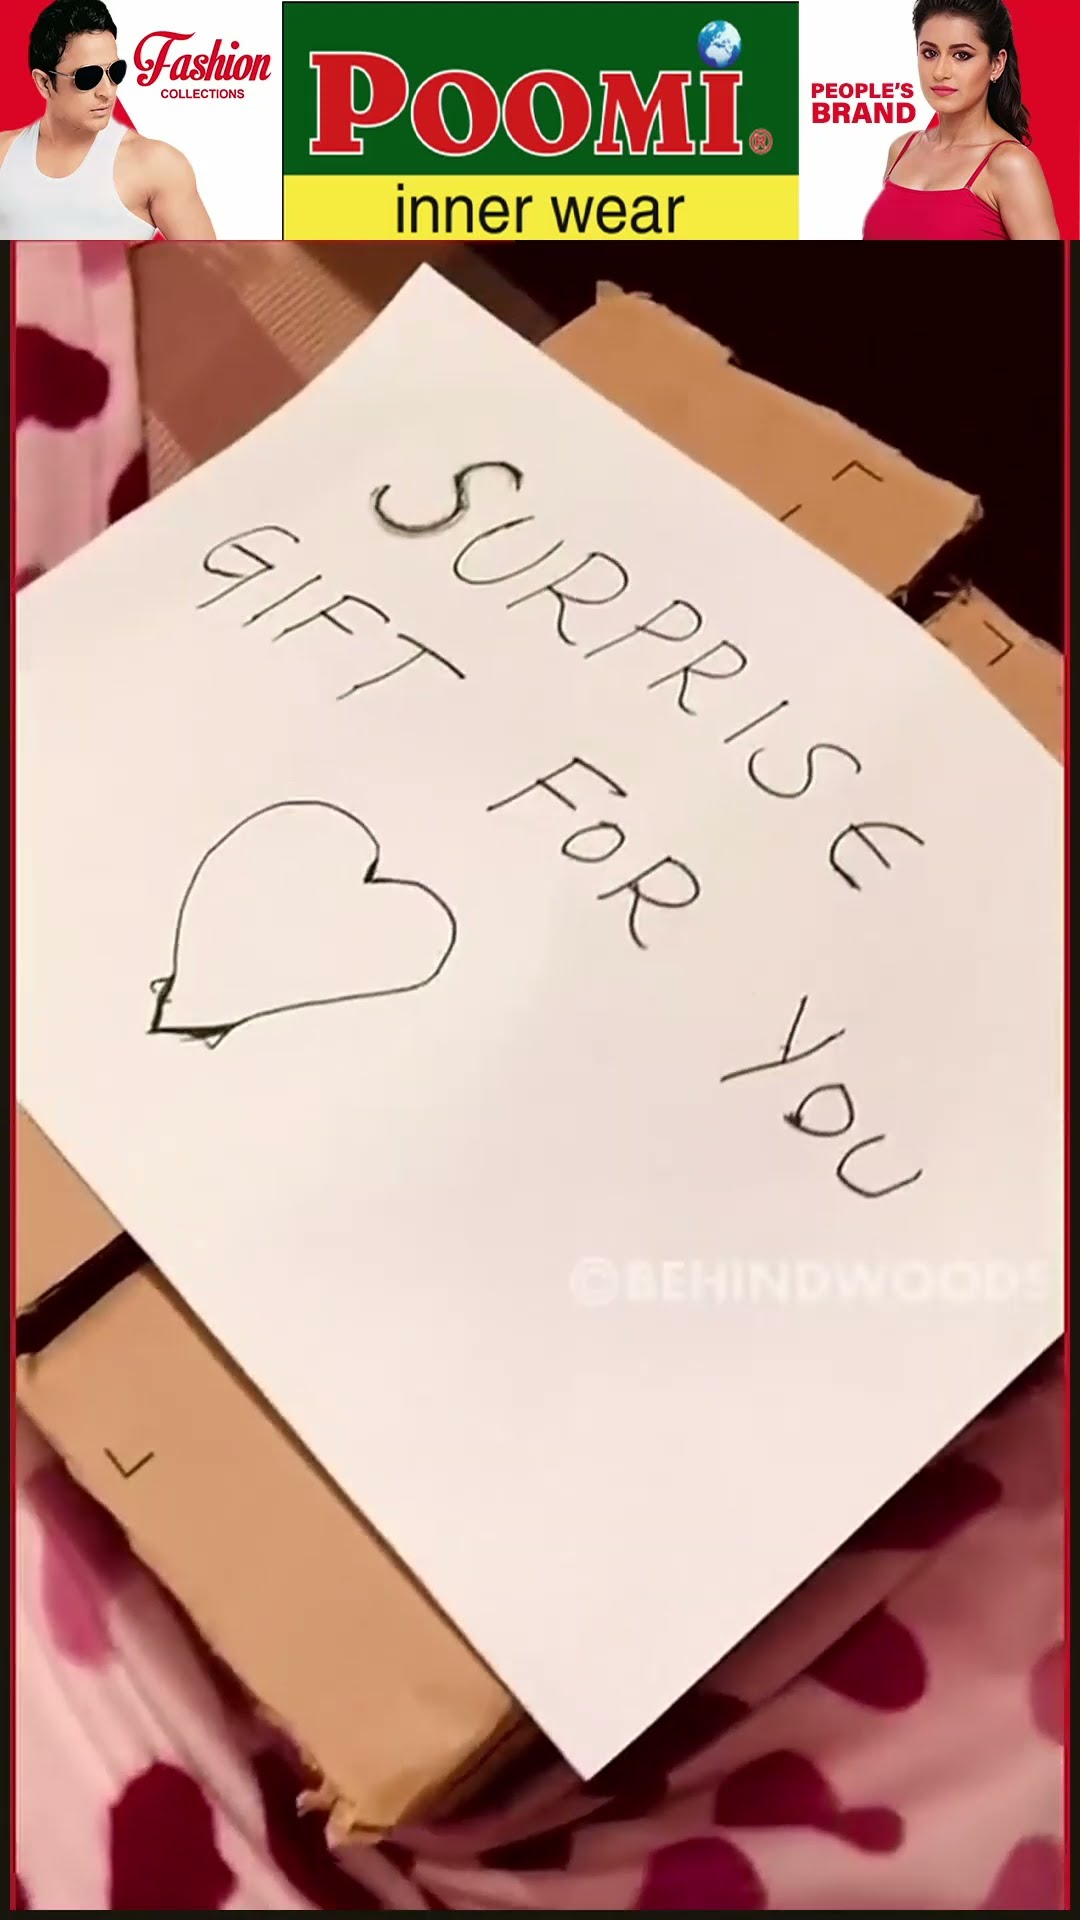 Fashion
COLLECTIONS
POOMI®
inner wear
PEOPLE'S
BRAND
SURPRISE
GIFT
FOR
YOU
©BEHINDWOODS